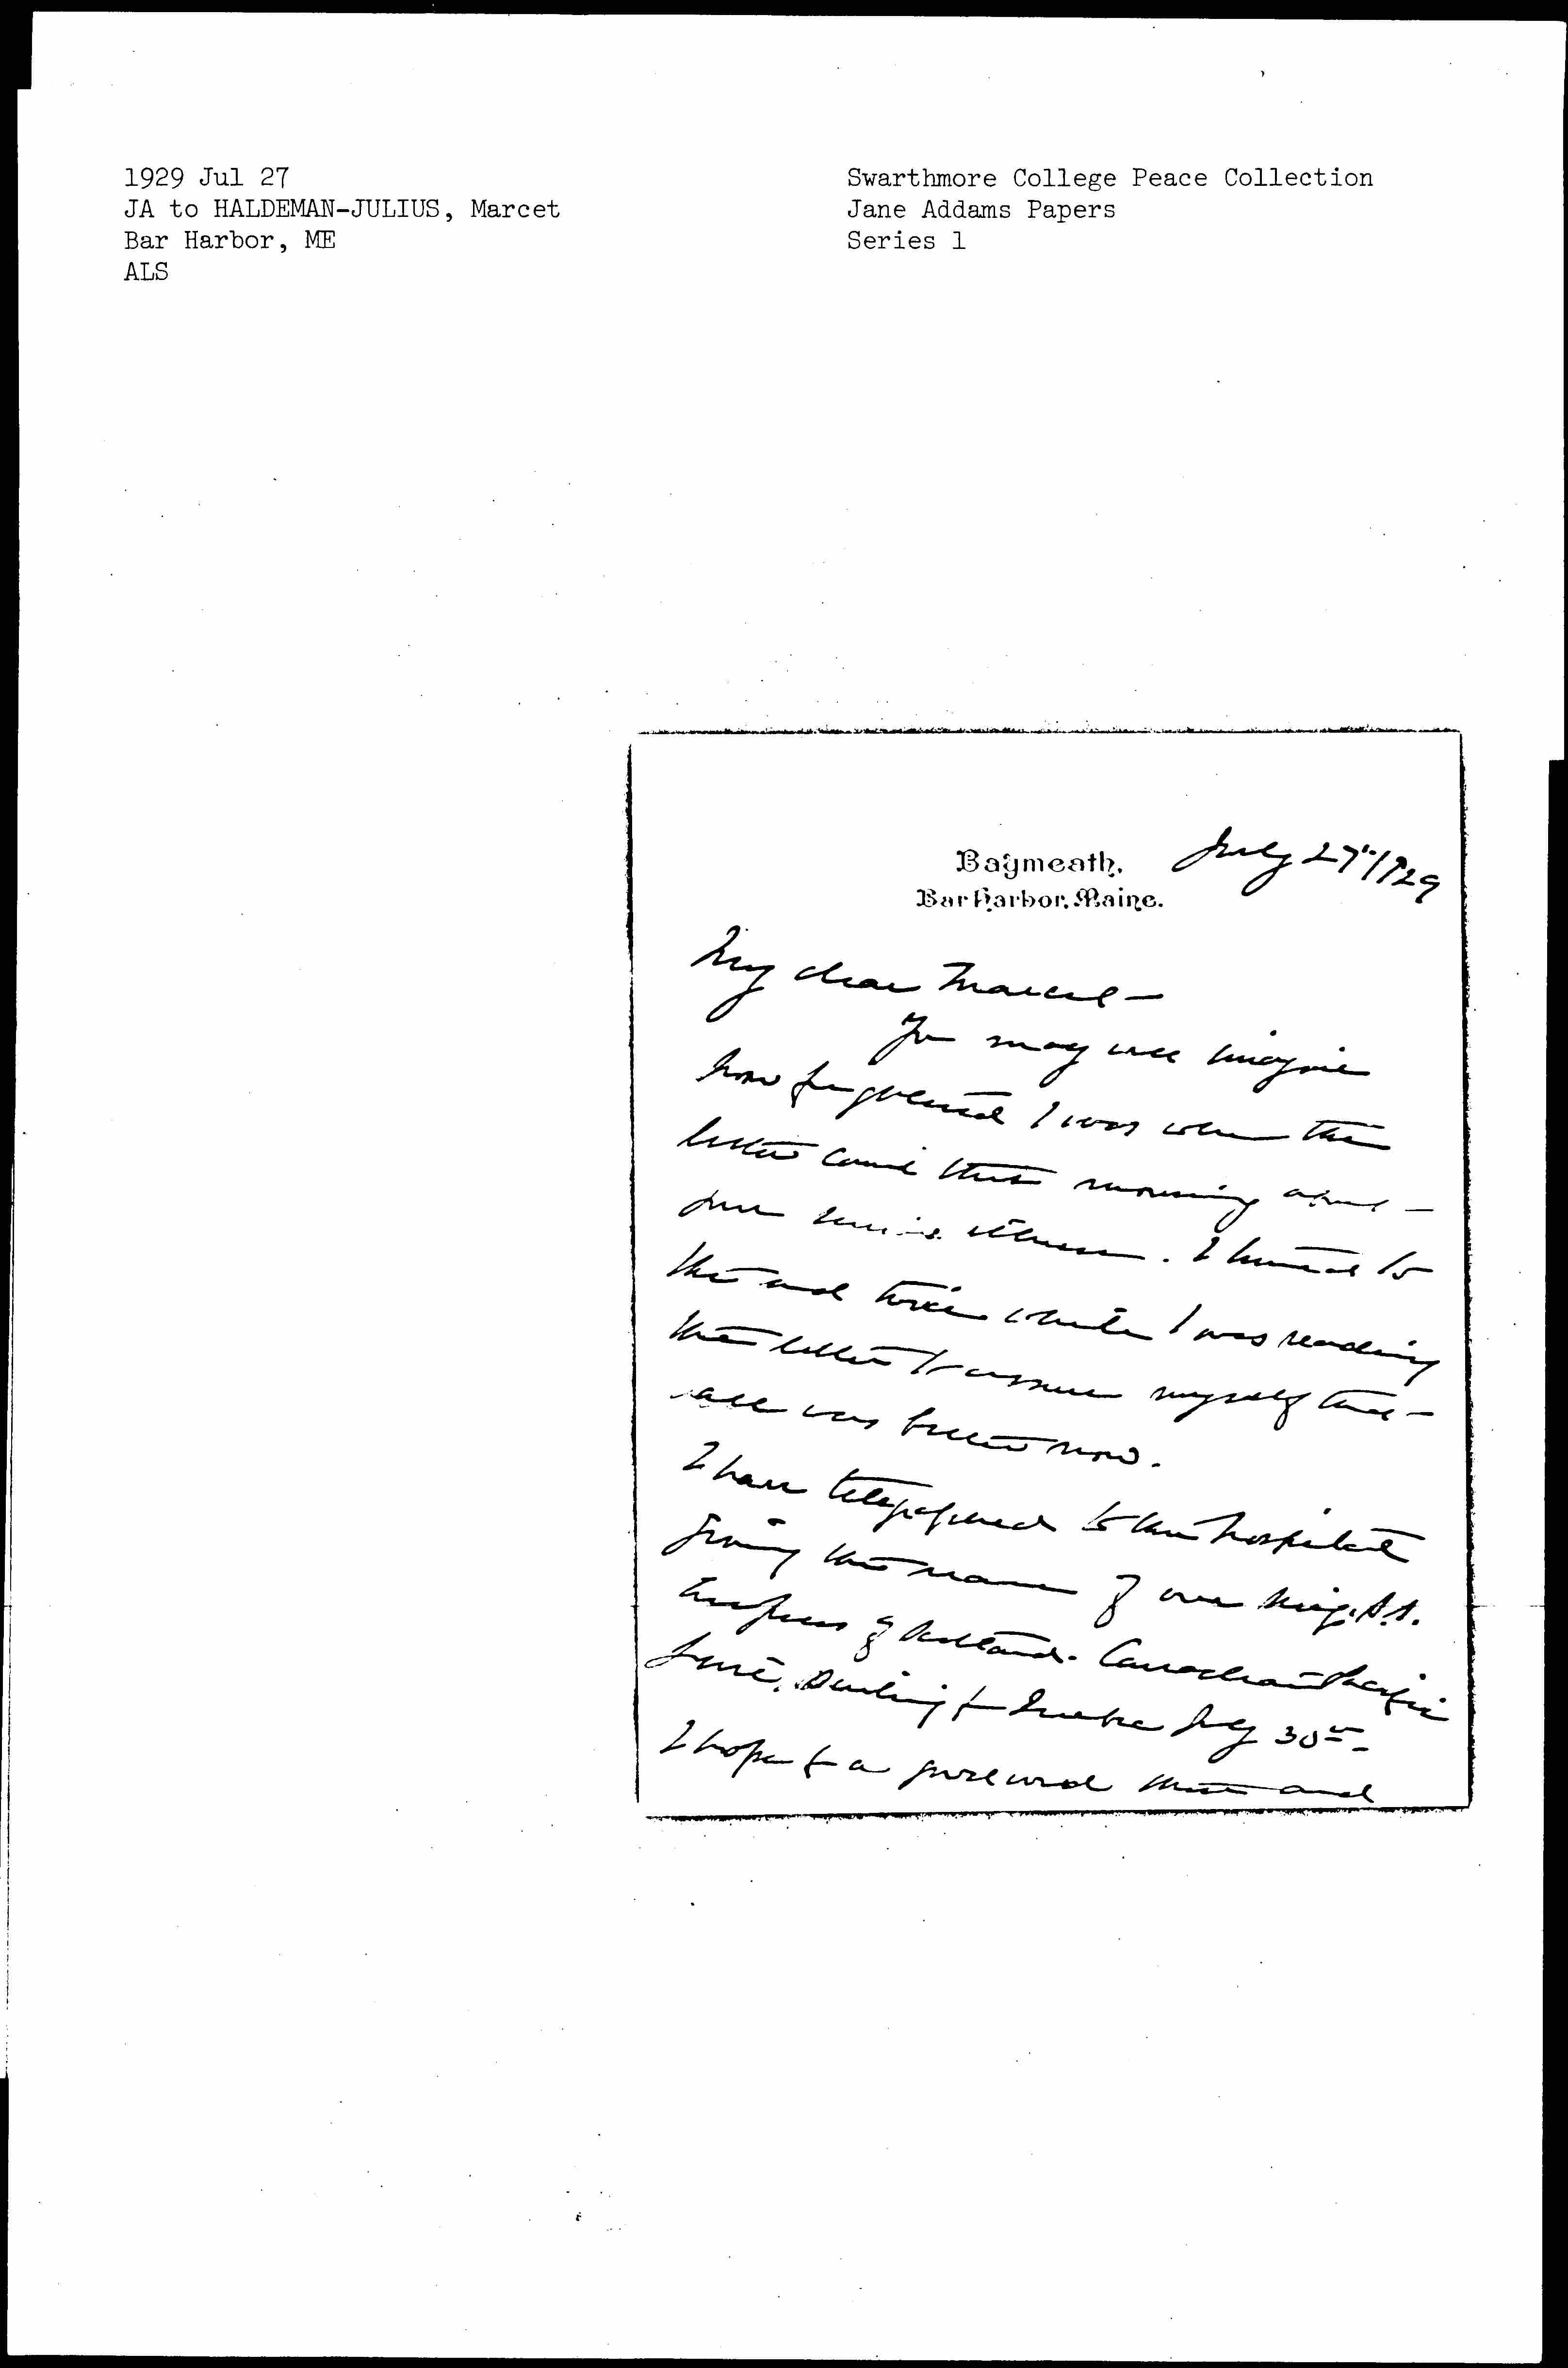 1929 Jul 27
JA to HALDEMAN-JULIUS, Marcet
Bar Harbor, ME
ALS
Swarthmore College Peace Collection
Jane Addams Papers
Series 1
Baymeath,
Bar Harbor, Maine.
July 27" 1929
My dear Marcet —
You may well imagine
how I was when the
letter came this morning about
illness. I turned to
the end twice while I was reading
the letter to assure myself that
all was better now.
I have telegraphed to the hospital
giving the name of our ship. S.S.
Empress of Scotland. Canadian Pacific
Line. Sailing from Quebec July 30th –
I hope for a good word then and